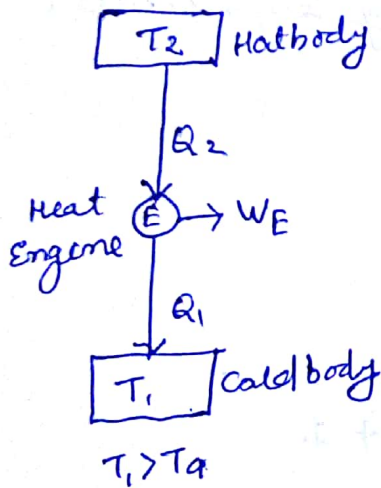 T2 Hotbody
Q2
Heat
Engine
E → WE
Q1
T1 Coldbody
T1 > Ta